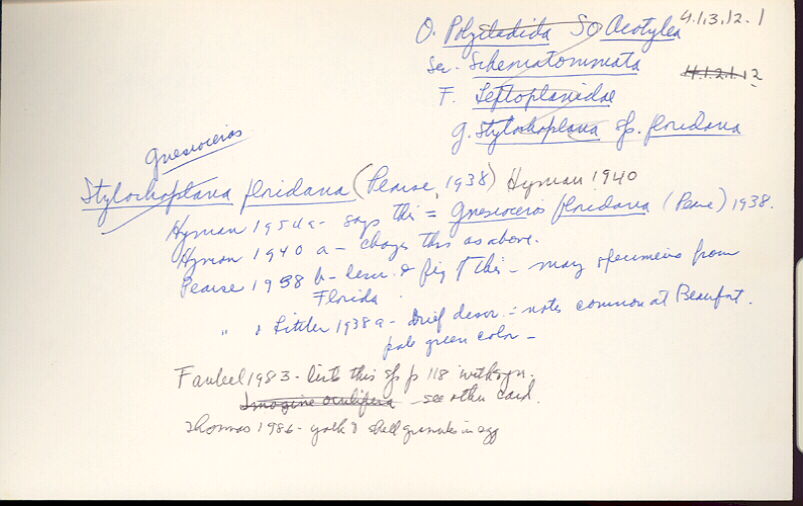 O. Polycladida SO Acotylea 4.1.3.12.1
Sec. Schematommata 4.1.2.1.12
F. Leptoplanidae
g. Stylochoplana sp. floridana
Gnesioceros
Stylochoplana floridana (Pearse, 1938) Hyman 1940
Hyman 1954a - says this = Gnesioceros floridana (Pearse) 1938.
Hyman 1940 a - changes this as above.
Pearse 1938 b - descr. & fig of this - many specimens from
Florida.
" & Littler 1938a - brief descr. - notes common at Beaufort.
pale green color -
Faubel 1983 - lists this sp p 118 with syn.
Imogine oculifera see other card.
Thomas 1986 - yolk & shell granules in egg